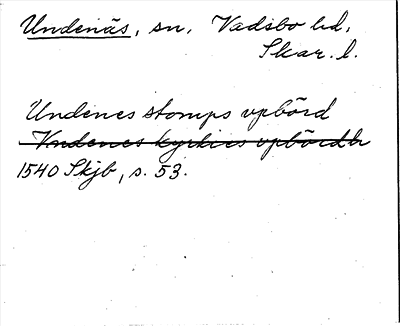 Undenäs, sn, Vadsbo hd,
Skar. l.
Undenes stomps vpbörd
Vndenes kyrkies vpbördh
1540 Skjb, s. 53.